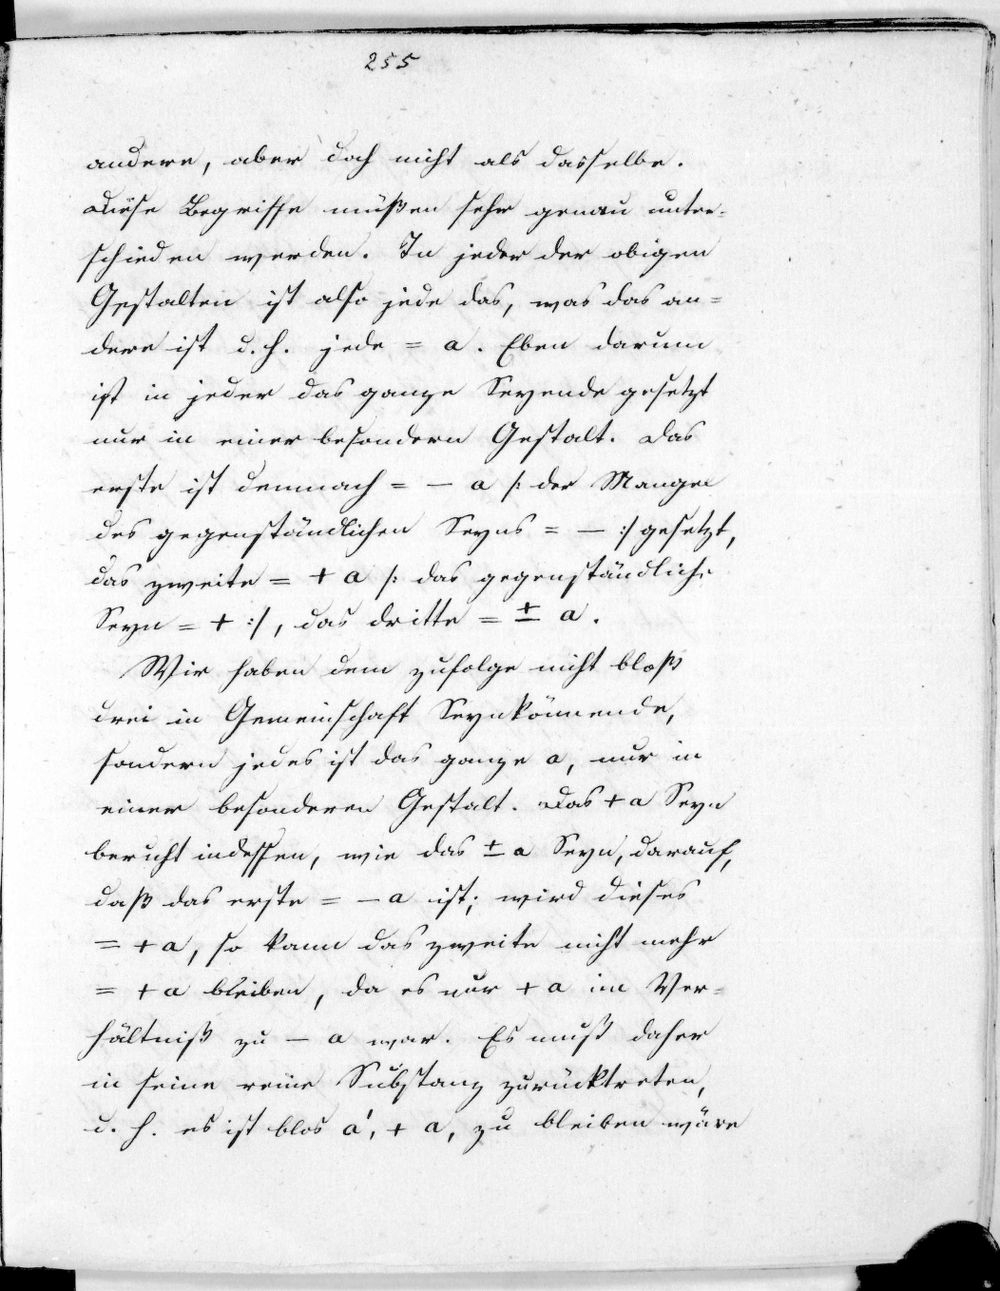 255
andere, aber doch nicht als dasselbe.
Diese Begriffe müßen sehr genau unter-
schieden werden. In jeder der obigen
Gestalten ist also jede das, was das an-
dere ist d. h. jede = a. Eben darum
ist in jeder das ganze Seyende gesetzt
nur in einer besondern Gestalt. Das
erste ist demnach = — a /: der Mangel
des gegenständlichen Seyns = — :/ gesetzt,
das zweite = + a /: das gegenständliche
Seyn = + :/, das dritte = ± a.
Wir haben dem zufolge nicht bloß
drei in Gemeinschaft Seynkönnende,
sondern jedes ist das ganze a, nur in
einer besonderen Gestalt. Das + a Seyn
beruht indessen, wie das ± a Seyn, darauf,
daß das erste = — a ist; wird dieses
= + a, so kann das zweite nicht mehr
= + a bleiben, da es nur + a im Ver-
hältniß zu — a war. Es muß daher
in seine reine Substanz zurücktreten,
d. h. es ist blos a, + a, zu bleiben wäre